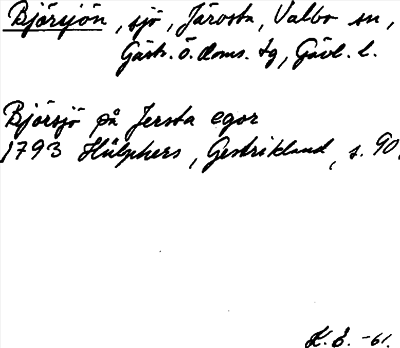 Björsjön, sjö, Järvsta, Valbo sn,
Gästr. ö. doms. tg, Gävl. l.
Björsjö på Jersta egor
1793 Hülphers, Gestrikland, s. 90.
K.E. -61.